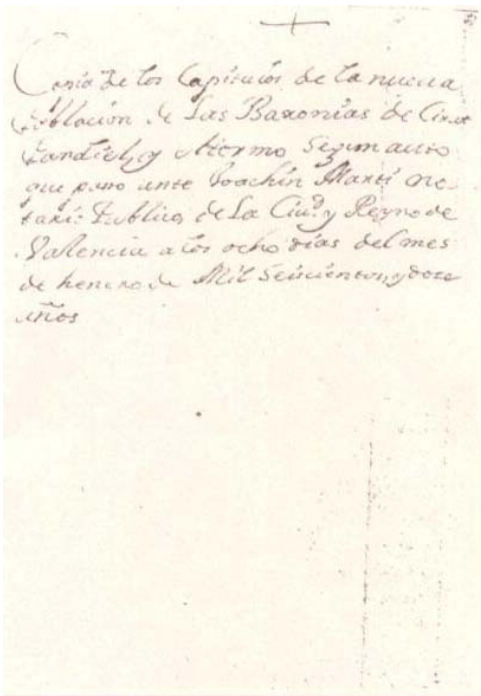 Copia de los Capitulos de la nueva
Poblacion de Las Baronias de Cirat
Pandiel, y Tormo Segun auto
que paso ante Joachin Marti no
tario Publico, de La Ciud. y Reyno de
Valencia a los ocho dias del mes
de henero de Mil Seiscientos, y doze
años